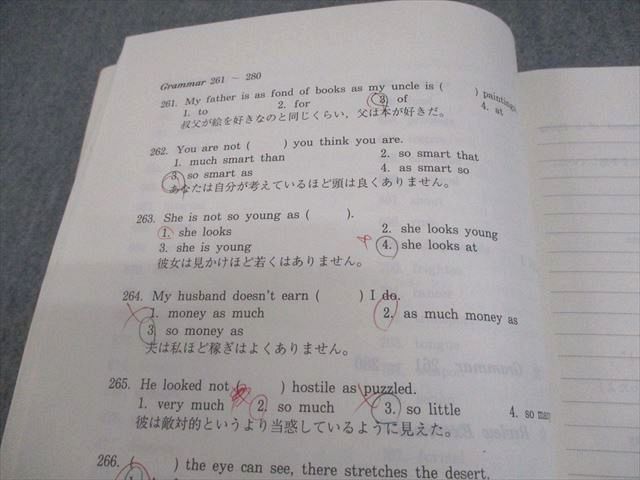 Grammar 261 ~ 280
261. My father is as fond of books as my uncle is (     ) paintings.
1. to   2. for   3. of   4. at
叔父が絵を好きなのと同じくらい，父は本が好きだ。
262. You are not (     ) you think you are.
1. much smart than   2. so smart that
3. so smart as   4. as smart so
あなたは自分が考えているほど頭は良くありません。
263. She is not so young as (     ).
1. she looks   2. she looks young
3. she is young   4. she looks at
彼女は見かけほど若くはありません。
264. My husband doesn't earn (     ) I do.
1. money as much   2. as much money as
3. so money as
夫は私ほど稼ぎはよくありません。
265. He looked not (     ) hostile as puzzled.
1. very much   2. so much   3. so little   4. so many
彼は敵対的というより当惑しているように見えた。
266. (     ) the eye can see, there stretches the desert.